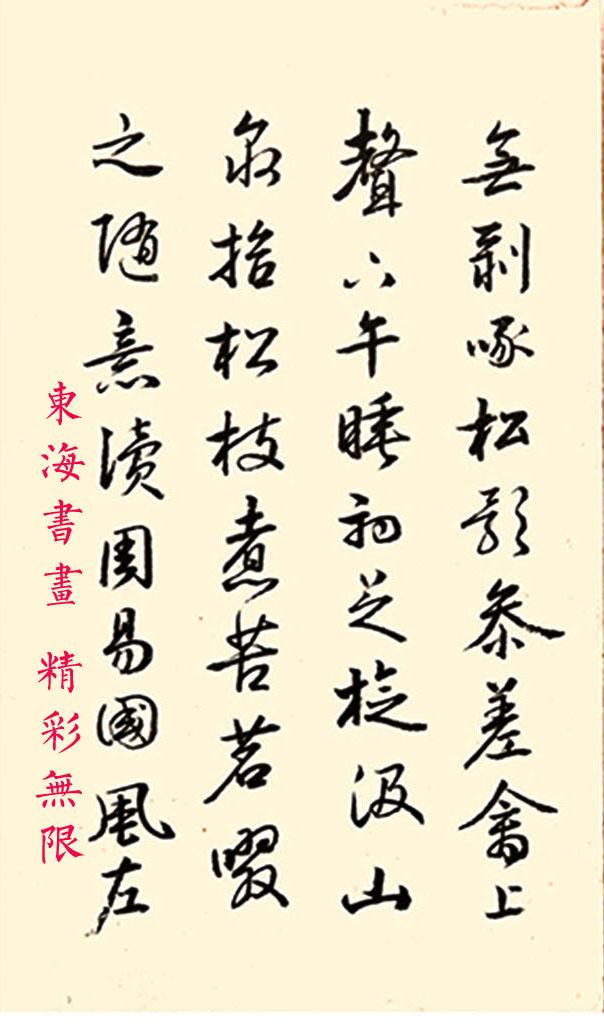 無剝啄松影參差禽上
聲下午睡初足旋汲山
泉拾松枝煮苦茗啜
之隨意讀周易國風左
東海書畫 精彩無限